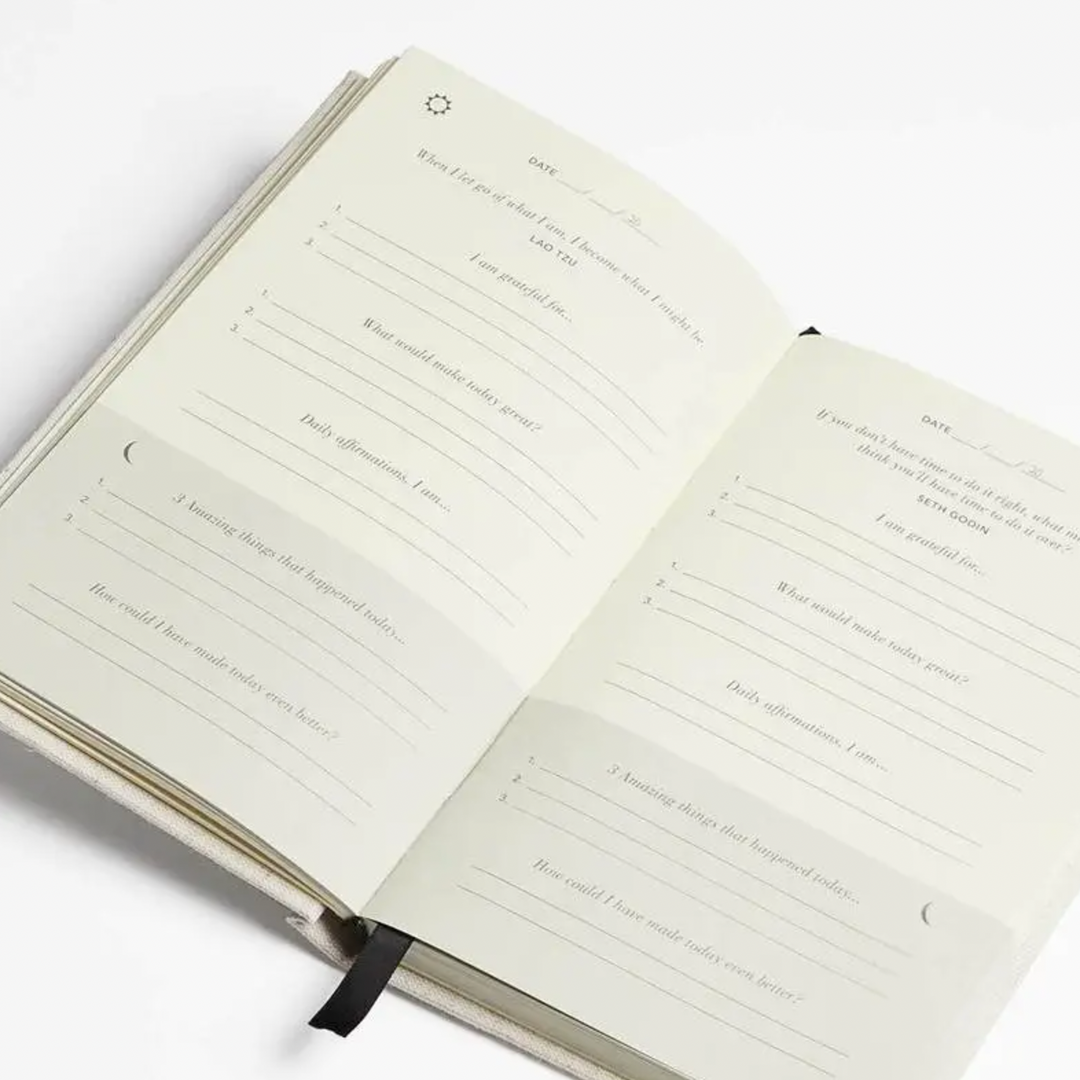 DATE ____/____/ 20____
When I let go of what I am, I become what I might be.
LAO TZU
I am grateful for...
1.
2.
3.
What would make today great?
1.
2.
3.
Daily affirmations. I am...
3 Amazing things that happened today...
1.
2.
3.
How could I have made today even better?
DATE ____/____/ 20____
If you don't have time to do it right, what
think you'll have time to do it over?
SETH GODIN
I am grateful for...
1.
2.
3.
What would make today great?
1.
2.
3.
Daily affirmations. I am...
3 Amazing things that happened today...
1.
2.
3.
How could I have made today even better?